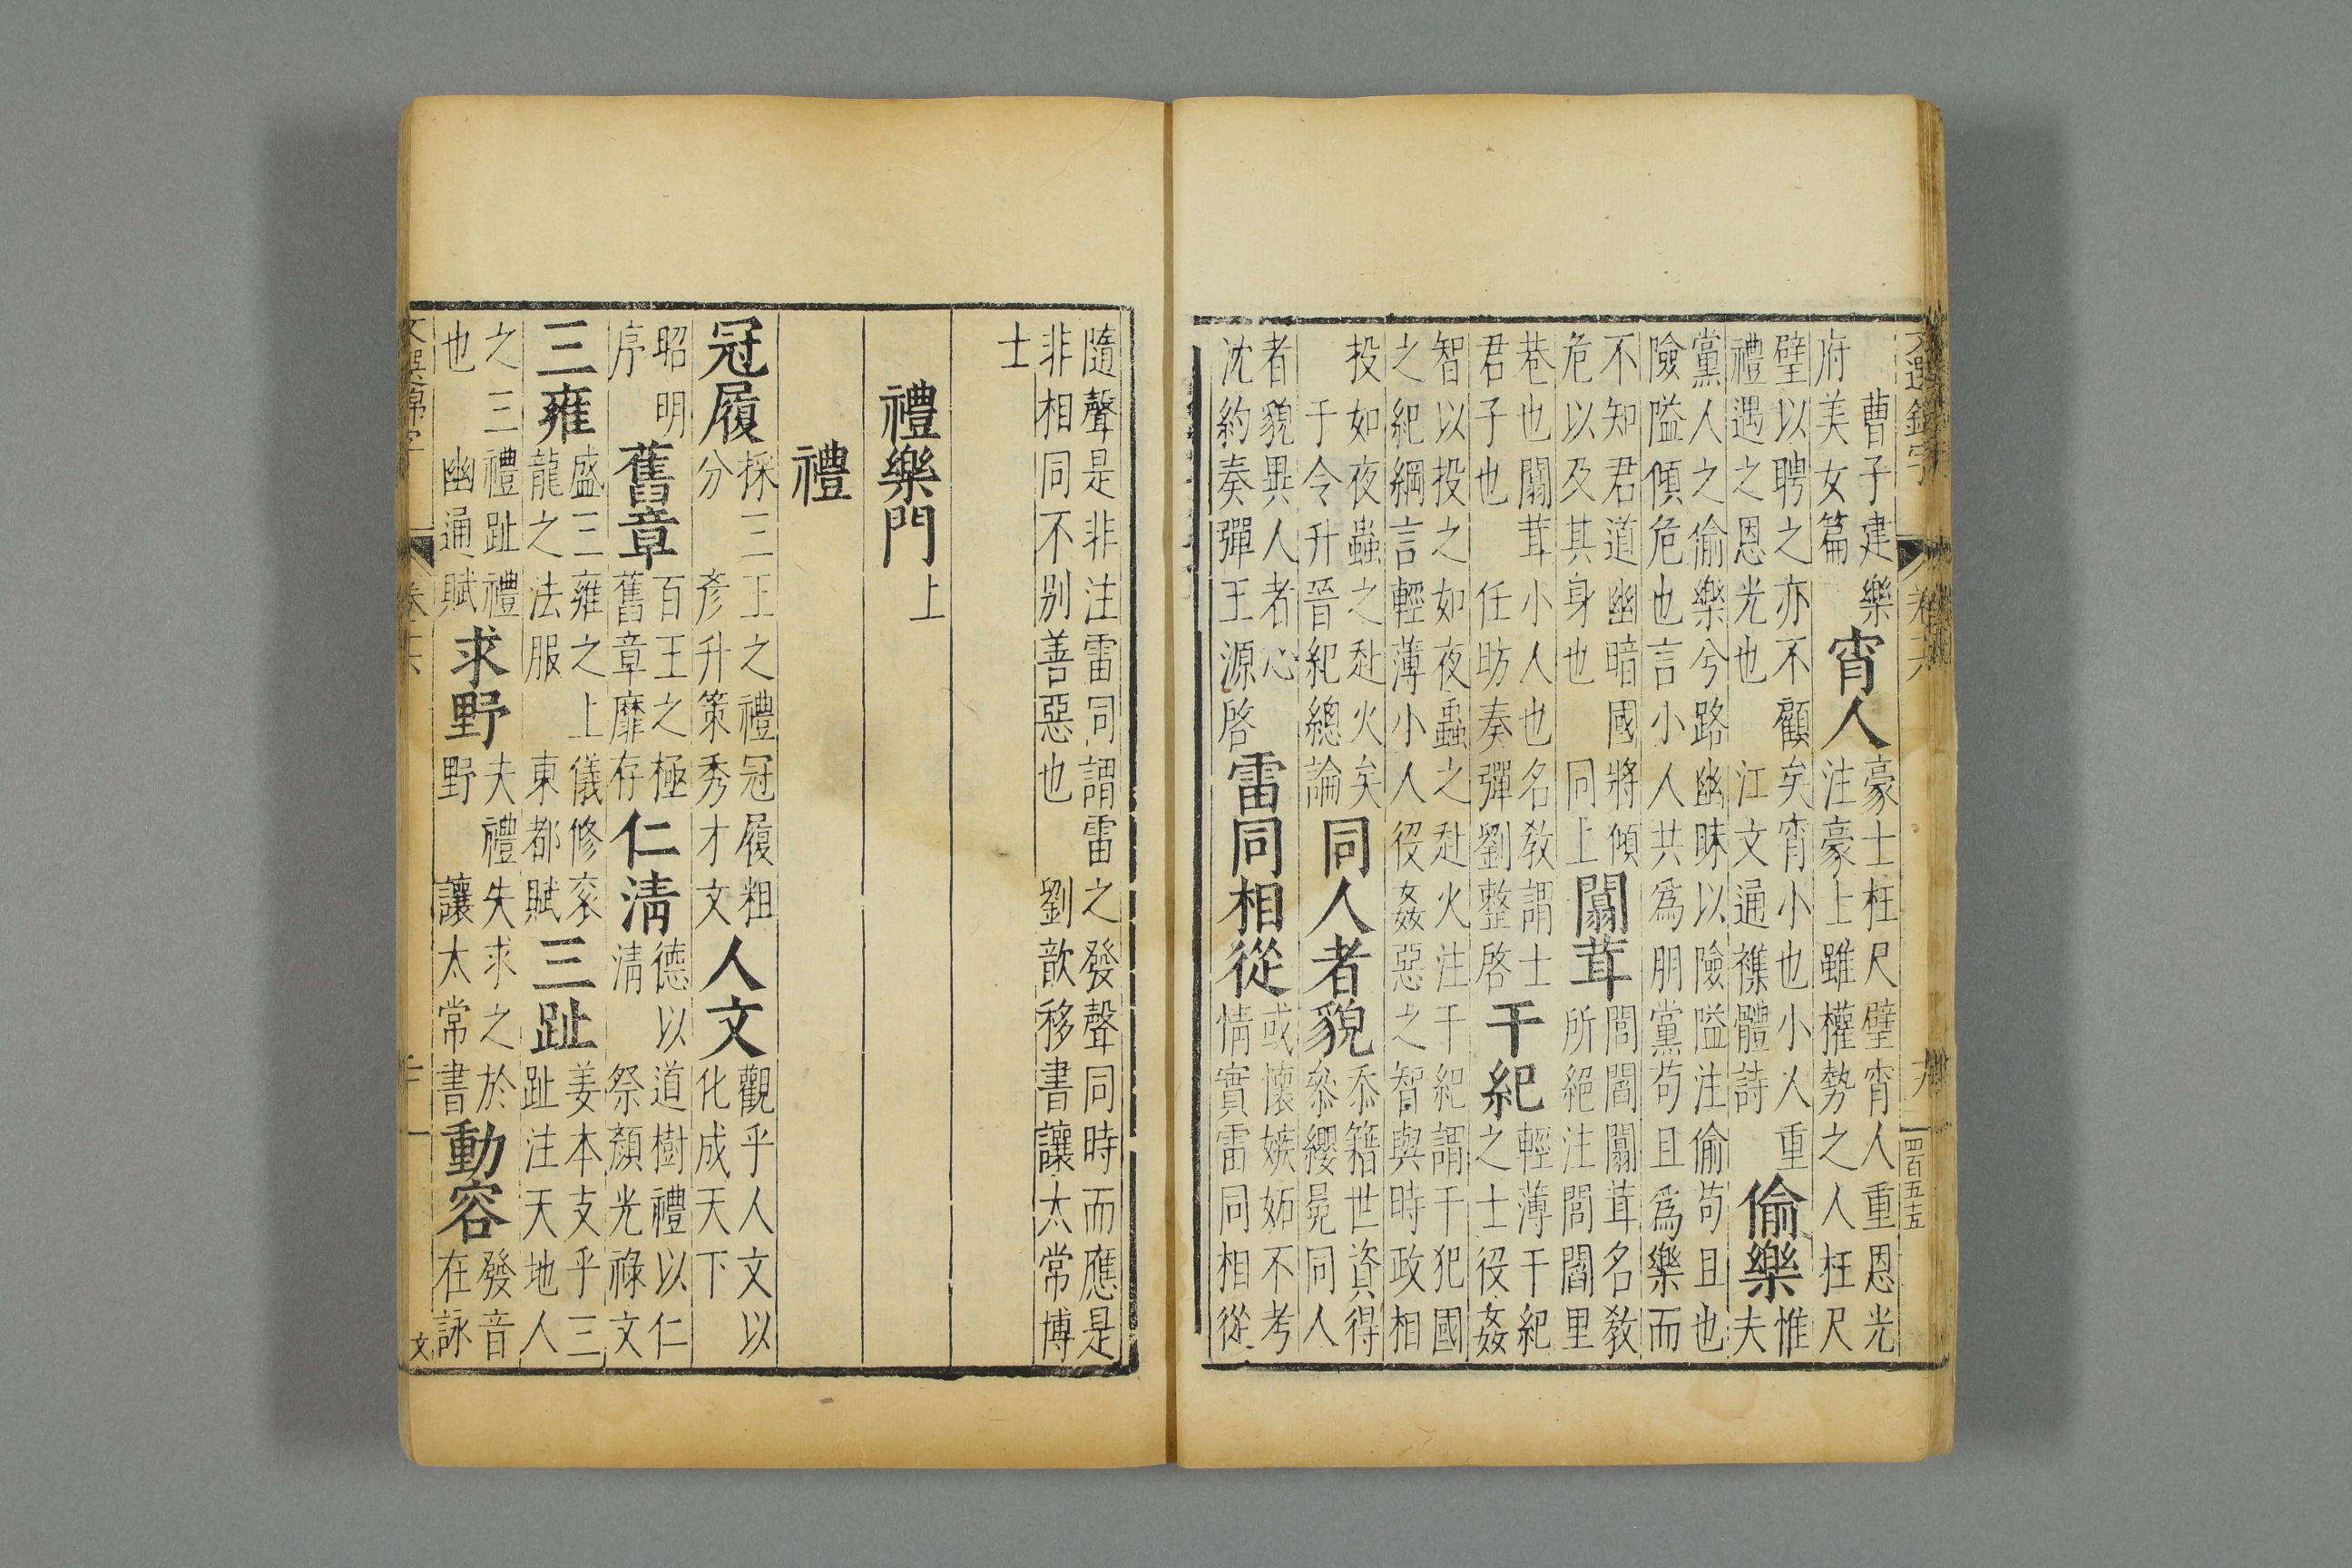 文選錦字 卷六 四百五十五
曹子建樂
府美女篇 宵人 豪士枉尺璧宵人重恩光
注豪上雖權勢之人枉尺
璧以聘之亦不顧矣宵小也小人重
禮遇之恩光也 江文通襍體詩 偷樂 惟
夫
黨人之偷樂兮路幽昧以險隘注偷苟且也
險隘傾危也言小人共爲朋黨苟且爲樂而
不知君道幽暗國將傾
危以及其身也 同上 闒茸 閭閻闒茸名敎
所絕注閭閻里
巷也闒茸小人也名敎謂士
君子也 任昉奏彈劉整啓 干紀 輕薄干紀
之士役姦
智以投之如夜蟲之赴火注干紀謂干犯國
之紀綱言輕薄小人役姦惡之智與時政相
投如夜蟲之赴火矣
于令升晉紀總論 同人者貌 忝籍世資得
叅纓冕同人
者貌異人者心
沈約奏彈王源啓 雷同相從 或懷嫉妬不考
情實雷同相從
隨聲是非注雷同謂雷之發聲同時而應是
非相同不别善惡也 劉歆移書讓太常博
士
禮樂門上
禮
冠履 採三王之禮冠履粗
分 彥升策秀才文 人文 觀乎人文以
化成天下
昭明
序 舊章 百王之極
舊章靡存 仁清 德以道樹禮以仁
清 祭顏光祿文
三雍 盛三雍之上儀修衮
龍之法服 東都賦 三趾 姜本支乎三
趾注天地人
之三禮趾禮
也 幽通賦 求野 夫禮失求之於
野 讓太常書 動容 發音
在詠
文選錦字 卷六 文